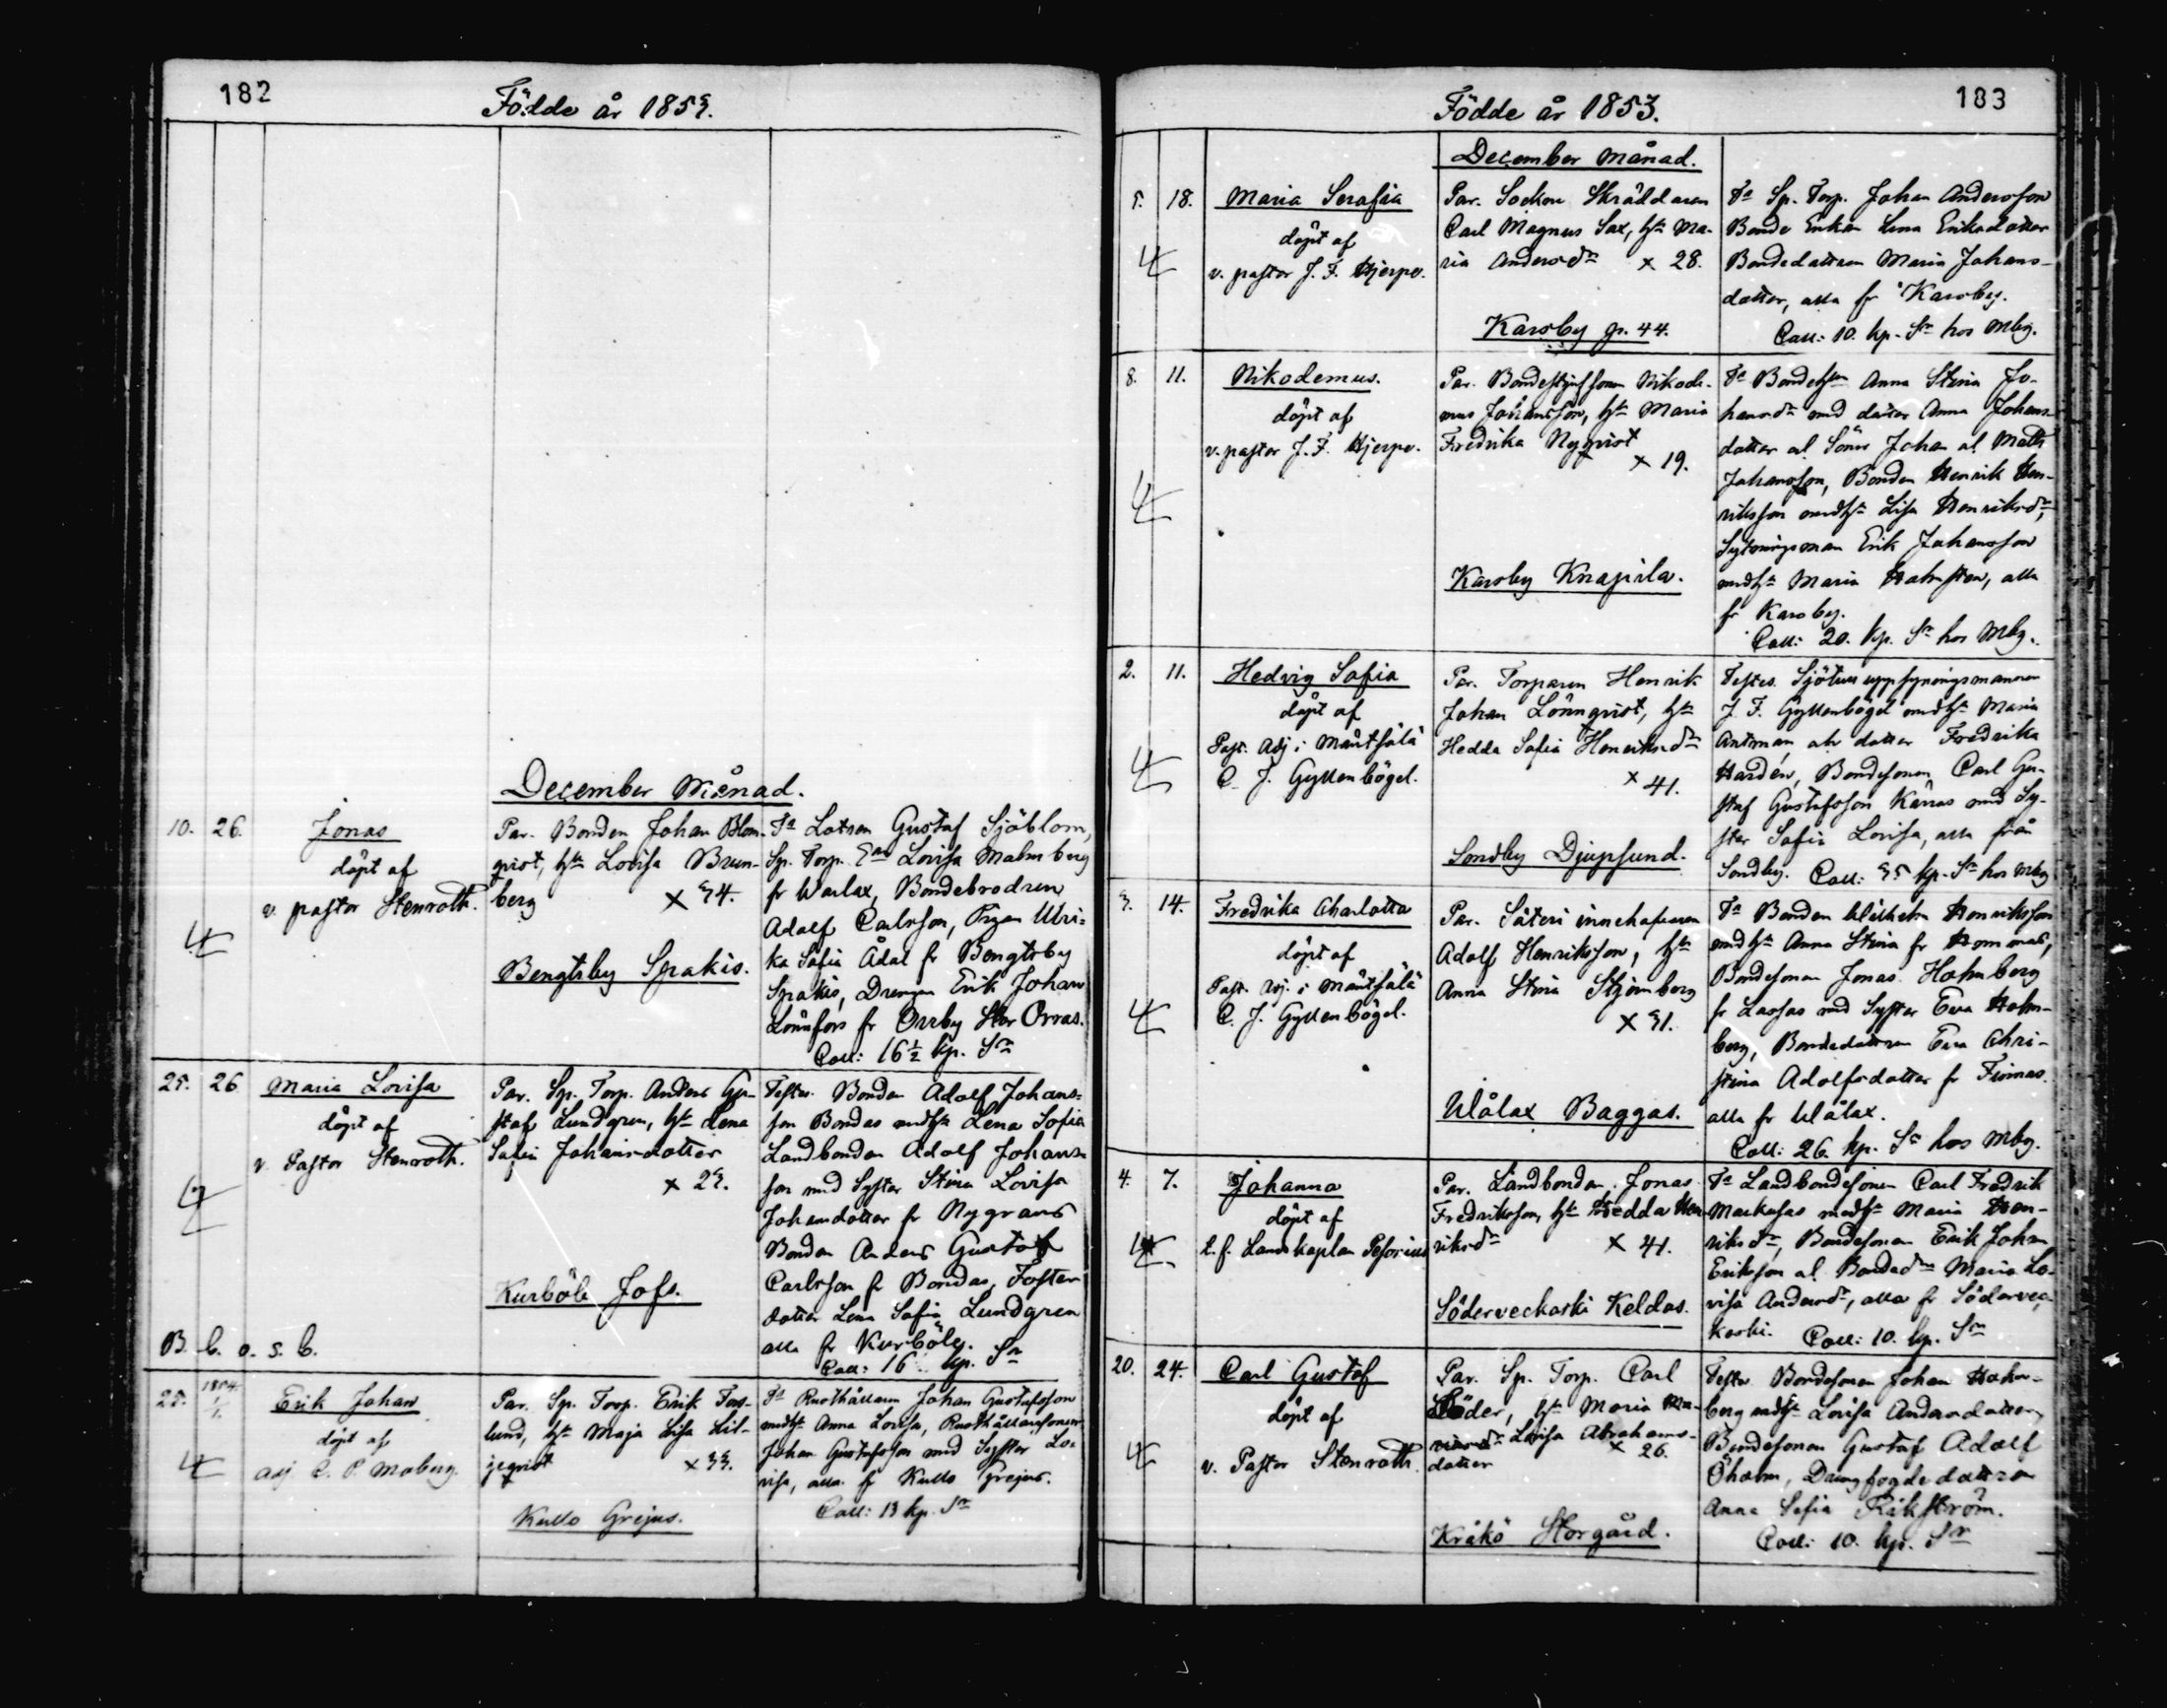 182
Födde år 1853.
December Månad.
10. 26.
Jonas
döpt af
v. pastor Stenroth.
Par. Bonden Johan Blom-
qvist, hu Lovisa Brun-
berg × 34.
Bengtsby Spakis.
Ts Lotsen Gustaf Sjöblom,
Sp. Torp. Lovisa Malmberg
fr Warlax, Bondebrodren
Adolf Carlsson, Pigan Ulri-
ka Sofia Ådal fr Bengtsby
Spakis, Drengen Erik Johan
Lönnfors fr Orrby Stor Orras.
Coll: 16 1/2 kp. Sr
25. 26
Maria Lovisa
döpt af
v. Pastor Stenroth.
Par. Sp. Torp. Anders Gu-
staf Lundgren, hu Lena
Sofia Johansdotter
× 23.
Kurböle Jofs.
Testes. Bonden Adolf Johans-
son Bondas med hu Lena Sofia
Landbonden Adolf Johans-
son med Syster Stina Lovisa
Johansdotter fr Nygrans
Bonden Anders Gustaf
Carlsson fr Bondas, Foster
dotter Lena Sofia Lundgren
alla fr Kurböle.
Coll: 16 kp. Sr
B. b. o. s. b.
25. 1854 1/1.
Erik Johan
döpt af
Adj C. P. Moberg.
Par. Sp. Torp. Erik Fors-
lund, hu Maja Lisa Lil-
jeqvist × 33.
Kullo Grejus.
Ts Rusthållaren Johan Gustafsson
med hu Anna Lovisa, Rusthållaresonen
Johan Gustafsson med Syster Lo-
visa, alla fr Kullo Grejus.
Coll: 13 kp. Sr
183
Födde år 1853.
December Månad.
5. 18.
Maria Serafia
döpt af
v. pastor J. F. Hjerpe.
Par. Socken Skräddaren
Carl Magnus Sax, hu Ma-
ria Andersdr × 28.
Karsby p. 44.
Ts Sp. Torp. Johan Andersson
Bonde Enkan Lena Eriksdotter
Bondedottren Maria Johans-
dotter, alla fr Karsby.
Coll: 10. kp. Sr hos Mbg.
8. 11.
Nikodemus.
döpt af
v. pastor J. F. Hjerpe.
Par. Bondestyfsonen Nikode-
mus Johansson, hu Maria
Fredrika Nyqvist
× 19.
Karsby Knapila.
Ts Anna Stina Jo-
hansdr med dotter Anna Johans-
dotter al. Söner Johan al. Matts
Johansson, Bonden Henrik Hen-
riksson med hu Lisa Henriksdr,
Sytningsman Erik Johansson
med hu Maria Holmsten, alla
fr Karsby.
Coll: 20. kp. Sr hos Mbg.
2. 11.
Hedvig Sofia
döpt af
Past. Adj i Mäntsälä
C. J. Gyllenbögel.
Par. Torparen Henrik
Johan Lönnqvist, hu
Hedda Sofia Henriksdr
× 41.
Sondby Djupsund.
Testes. Sjötulluppsyningsmannen
J. F. Gyllenbögel med hu Maria
Antman, dotter Fredrika
Hardén, Bondesonen Carl Gu-
staf Gustafsson Kärras med Sy-
ster Sofia Lovisa, alla från
Sondby. Coll: 35 kp. Sr hos Mbg
3. 14.
Fredrika Charlotta
döpt af
Past. Adj. i Mäntsälä
C. J. Gyllenbögel.
Par. Säteri innehafvaren
Adolf Henriksson, hu
Anna Stina Stjernberg
× 31.
Wålax Baggas.
Ts Bonden Wilhelm Henriksson
med hu Anna Stina fr Hommas,
Bondesonen Jonas Holmberg
fr Lassas med Syster Eva Holm-
berg, Bondedottren Eva Chri-
stina Adolfsdotter fr Finnas.
alla fr Wålax.
Coll: 26. kp. Sr hos Mbg.
4. 7.
Johanna
döpt af
t. f. Landskaplan Pesonius
Par. Landbonden Jonas
Fredriksson, hu Hedda Hen-
riksdr × 41.
Söderveckoski Keldas.
Ts Landbondesonen Carl Fredrik
Markusas med hu Maria Hen-
riksdr, Bondesonen Erik Johan
Eriksson al. Bondedr Maria Lo-
visa Andersdr, alla fr Söderveck-
koski. Coll: 10. kp. Sr
20. 24.
Carl Gustaf
döpt af
v. Pastor Stenroth.
Par. Sp. Torp. Carl
Söder, hu Maria
Lovisa Abrahams-
dotter × 26.
Kråkö Storgård.
Testes Bondesonen Johan Holm-
berg med hu Lovisa Andersdotter,
Bondesonen Gustaf Adolf
Öholm, Drengfogdedottren
Anna Sofia Rikström.
Coll: 10. kp. Sr